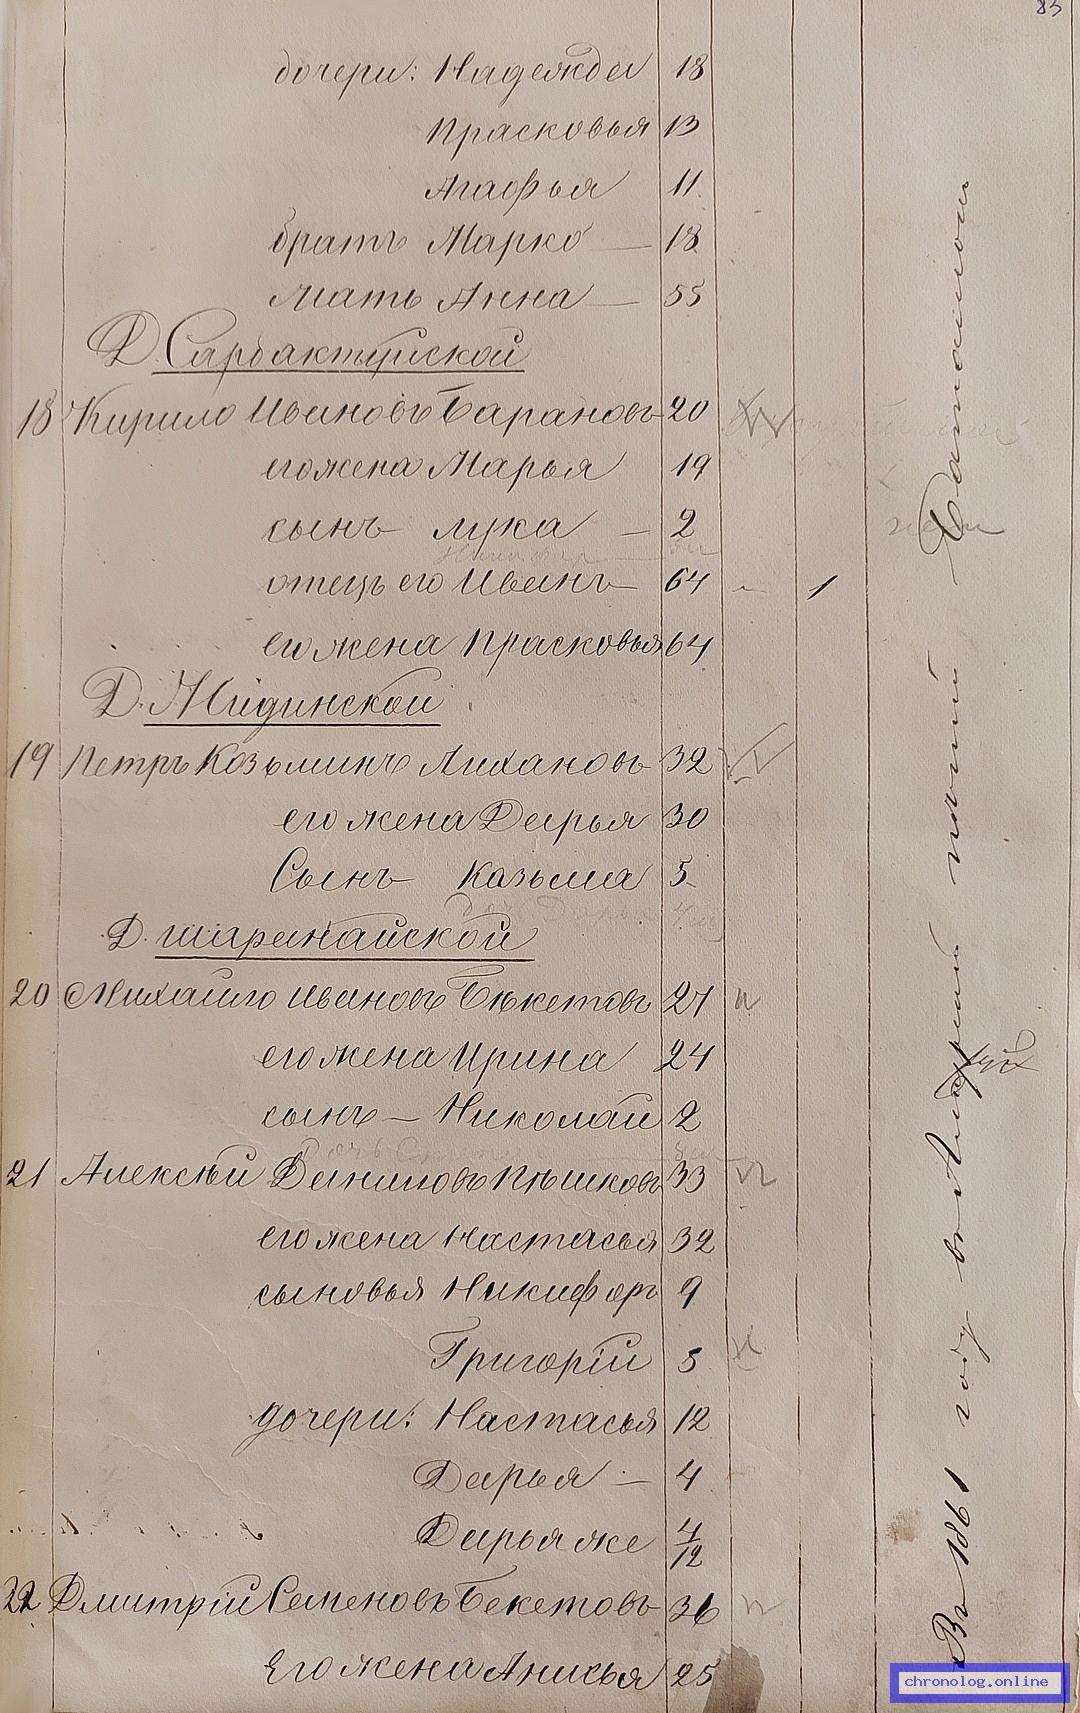 85
дочери: Надежда 18
Прасковья 13
Агафья 11.
братъ Марко — 18
мать Анна — 55
Д. Сарбактуйской
18 Кирило Ивановъ Барановъ 20
его жена Марья 19
сынъ Лука — 2
отецъ его Иванъ — 64 1
его жена Прасковья 64
Д. Жидинской
19 Петръ Козьминъ Лихановъ 32
его жена Дарья 30
Сынъ Козьма 5
дочь Дарья
Д. Шаранайской
20 Михайло Ивановъ Бѣкетовъ 27
его жена Ирина 24
сынъ — Николай 2
дочь
21 Алексѣй Даниловъ Пѣшковъ 33
его жена Настасья 32
сыновья Никифоръ 9
Григорій 5
дочери: Настасья 12
Дарья — 4
Дарья же 4/12
22 Дмитрій Семеновъ Бекетовъ 36
Его жена Анисья 25
Въ 1861 году въ Амурскій пѣшій баталіонъ
chronolog.online